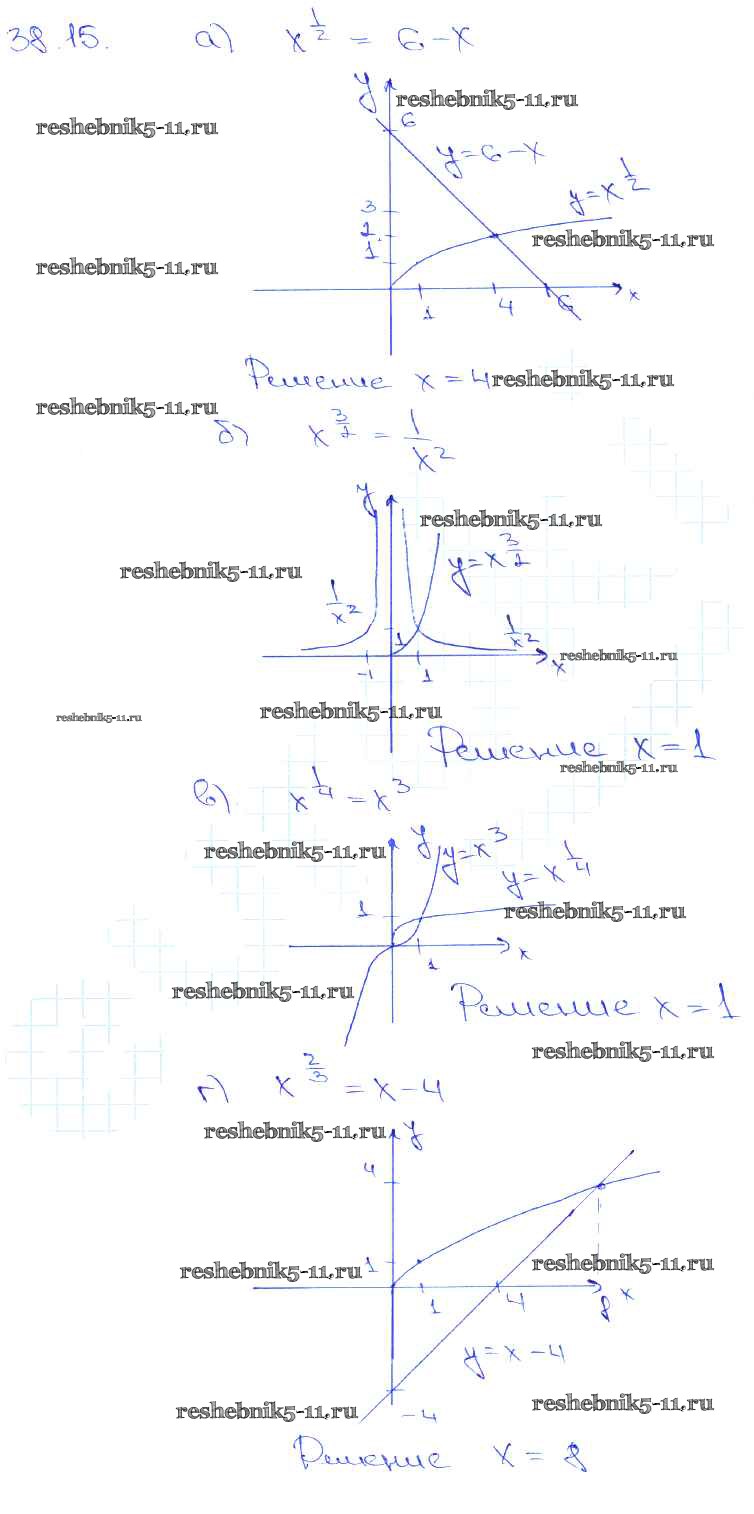 38.15. а) x^{1/2} = 6 - x
y
reshebnik5-11.ru
reshebnik5-11.ru
6
y = 6 - x
y = x^{1/2}
3
2
reshebnik5-11.ru
1
reshebnik5-11.ru
1 4 6 x
Решение x = 4
reshebnik5-11.ru
reshebnik5-11.ru
б) x^{3/2} = 1/x^2
y
reshebnik5-11.ru
y = x^{3/2}
reshebnik5-11.ru
1/x^2
1
1/x^2
reshebnik5-11.ru
-1 1 x
reshebnik5-11.ru
reshebnik5-11.ru
Решение x = 1
reshebnik5-11.ru
в) x^{1/4} = x^3
y
y = x^3
reshebnik5-11.ru
y = x^{1/4}
1
reshebnik5-11.ru
1 x
reshebnik5-11.ru
Решение x = 1
reshebnik5-11.ru
г) x^{2/3} = x - 4
reshebnik5-11.ru
y
4
1
reshebnik5-11.ru
reshebnik5-11.ru
1 4 8 x
y = x - 4
reshebnik5-11.ru
reshebnik5-11.ru
-4
Решение x = 8